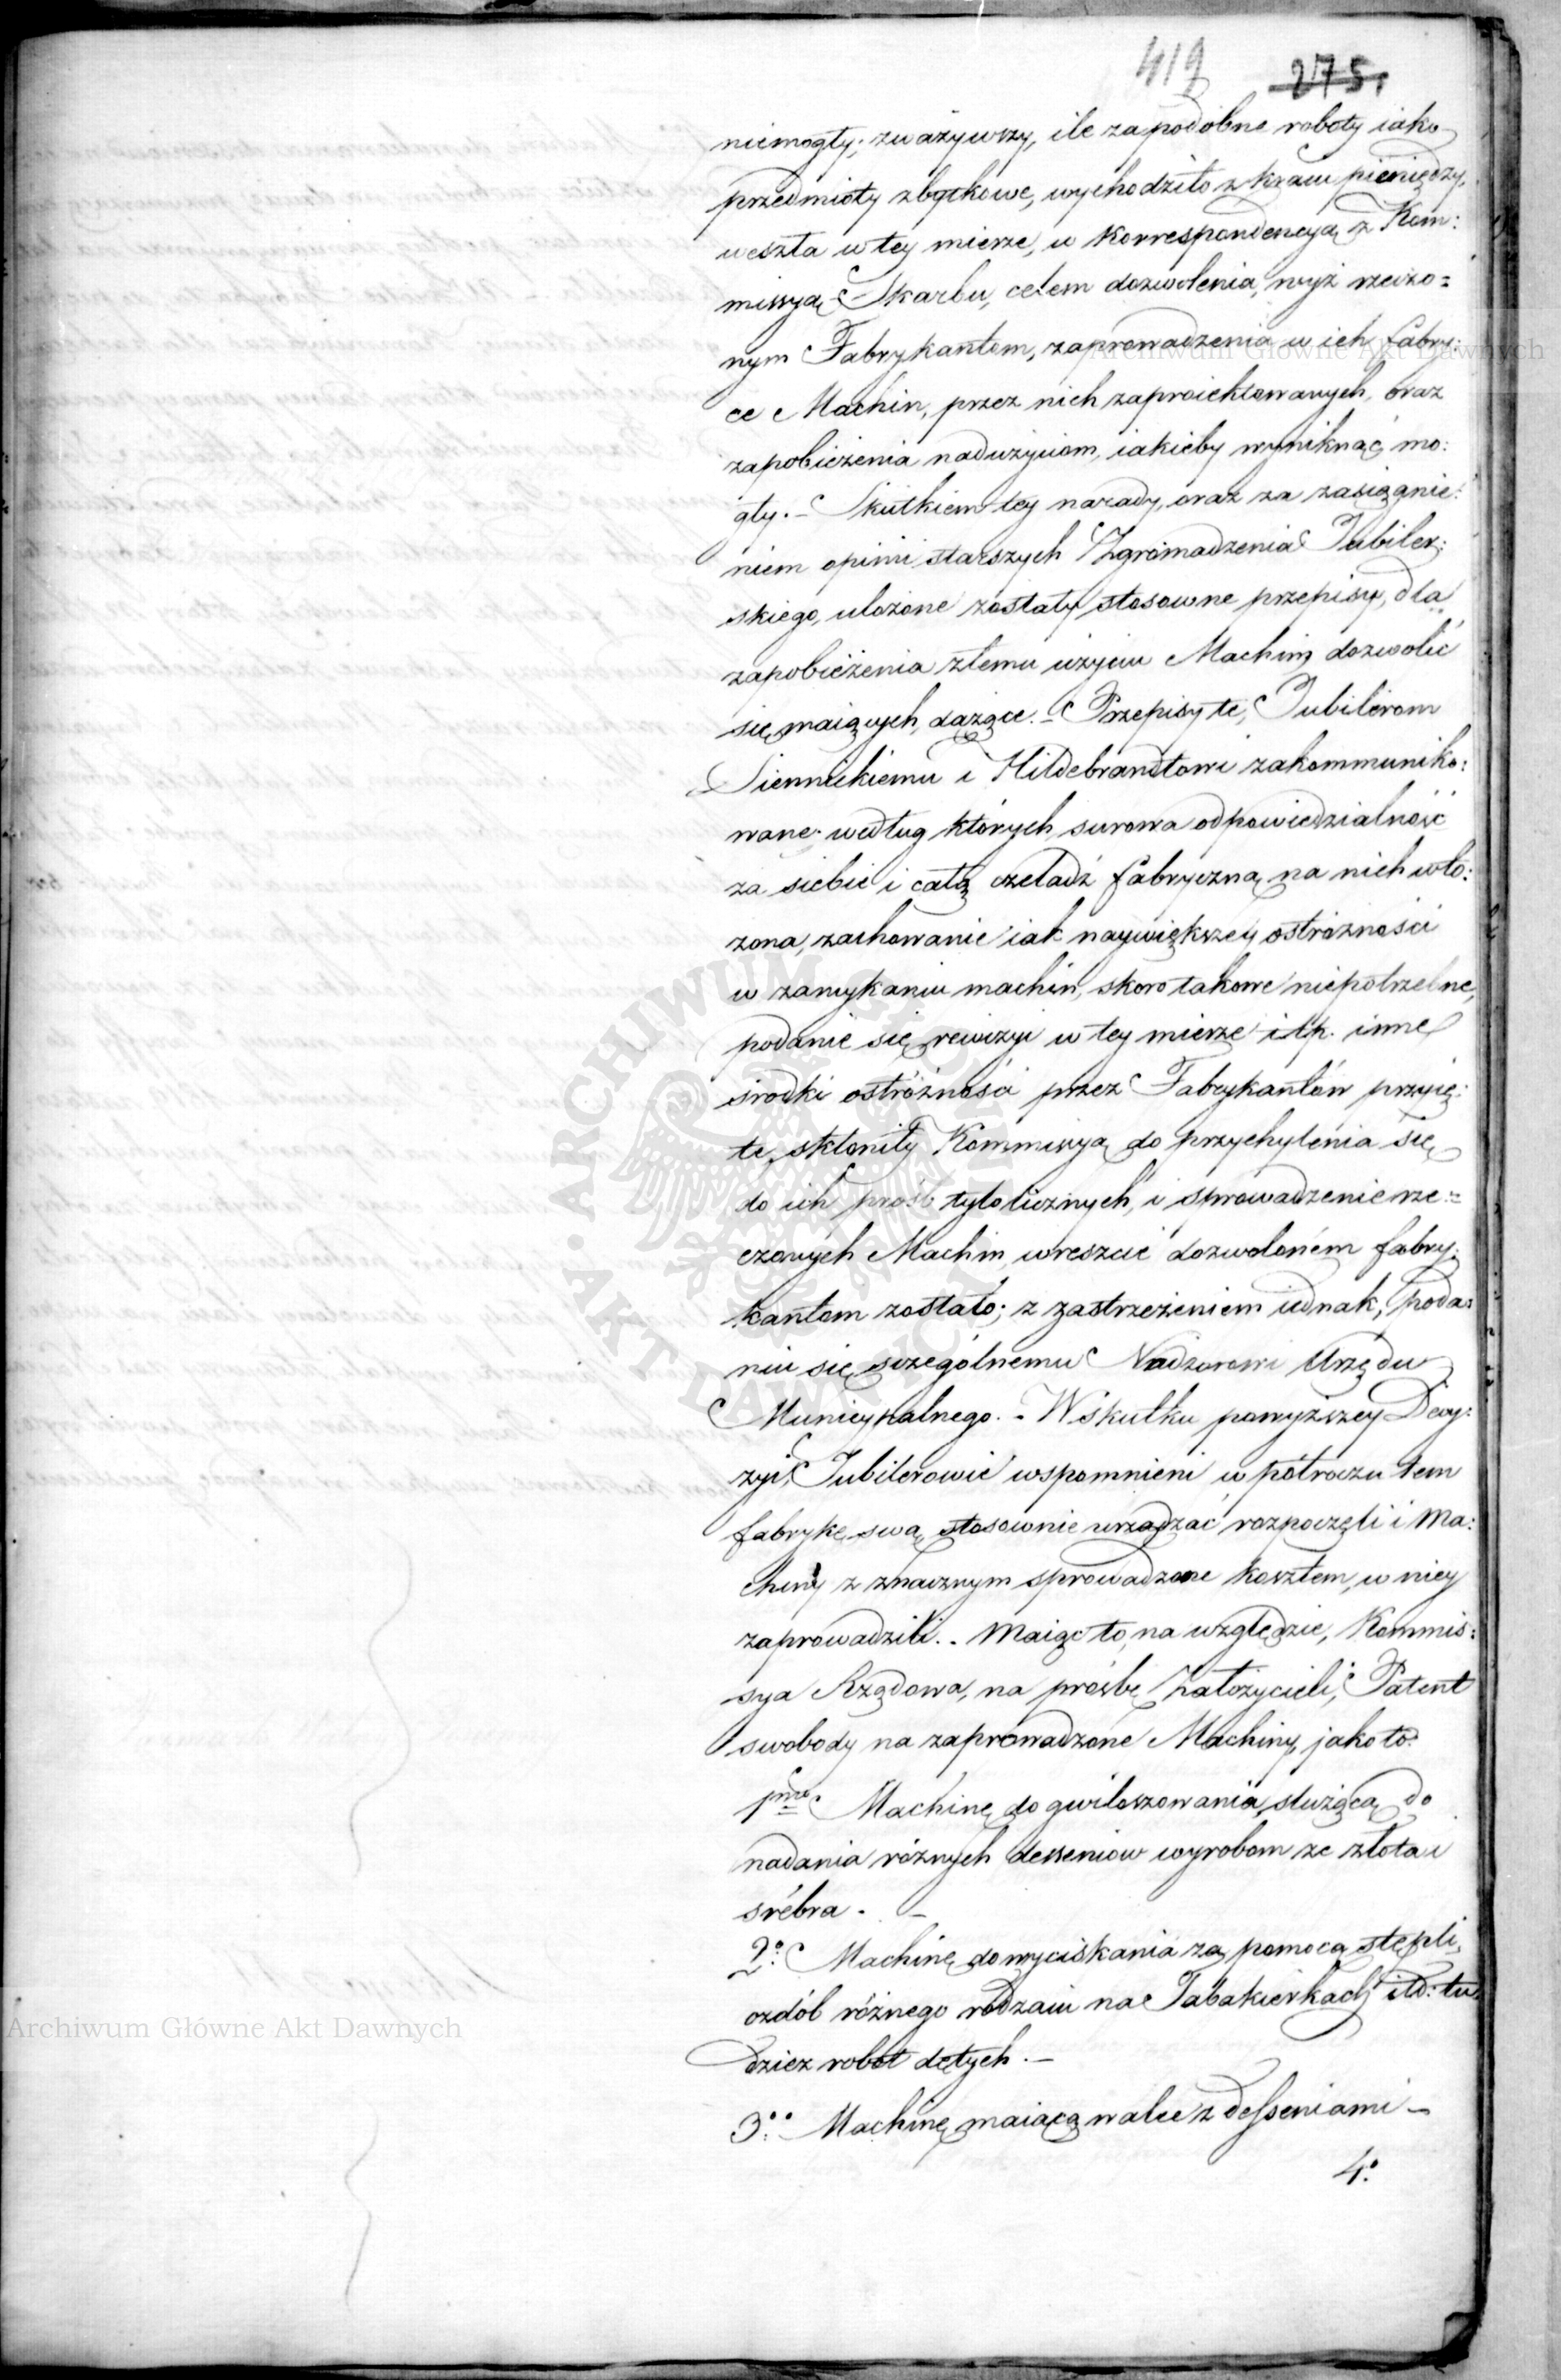 419 275.
niemogły; zważywszy, ile za podobne roboty iako
przedmioty zbytkowe, wychodziło z kraiu pieniędzy,
weszła w tey mierze, w korrespondencyą z Kom:
missyą Skarbu, celem dozwolenia, wyż rzeczo=
nym Fabrykantom, zaprowadzenia w ich fabry:
ce Machin, przez nich zaproiektowanych, oraz
zapobieżenia nadużyciom, iakieby wyniknąć mo:
gły. – Skutkiem tey narady, oraz za zasiągnie:
niem opinii starszych Zgromadzenia Jubiler:
skiego, ułożone zostały stosowne przepisy, dla
zapobieżenia złemu użyciu Machin, dozwolić
się maiących, dążące. – Przepisy te, Jubilerom
Siennickiemu i Hildebrandtowi zakommuniko:
wane; według których, surowa odpowiedzialność
za siebie i całą czeladź fabryczną na nich wło:
żona, zachowanie iak naywiększey ostrożności
w zamykaniu machin, skoro takowe niepotrzebne,
podanie się rewizyi w tey mierze i t.p. inne
środki ostróżności przez Fabrykantów przyię:
te, skłoniły Kommissyą do przychylenia się
do ich prośb tylolicznych, i sprowadzenie rze=
czonych Machin, wreszcie dozwolonem fabry:
kantom zostało; z zastrzeżeniem iednak, poda=
niu się szczególnemu Nadzorowi Urzędu
Municypalnego. – W skutku powyższey Decy:
zyi, Jubilerowie wspomnieni w półroczu tem
fabrykę swą stosownie urządzać rozpoczęli i Ma:
chiny z znacznym sprowadzone kosztem, w niey
zaprowadzili. – Maiąc to, na względzie, Kommis:
sya Rządowa, na prośbę Założycieli, Patent
swobody na zaprowadzone Machiny, jako to:
1mo Machinę do gwiloszowania, służącą do
nadania różnych desseniow wyrobom ze złota i
srébra. –
2o: Machinę do wyciskania za pomocą stępli,
ozdób różnego rodzaiu na Tabakierkach itd: tu
dzież robót dętych. –
3o: Machinę maiącą walce z desseniami –
4o:
Archiwum Główne Akt Dawnych
Archiwum Główne Akt Dawnych
ARCHIWUM GŁÓWNE AKT DAWNYCH